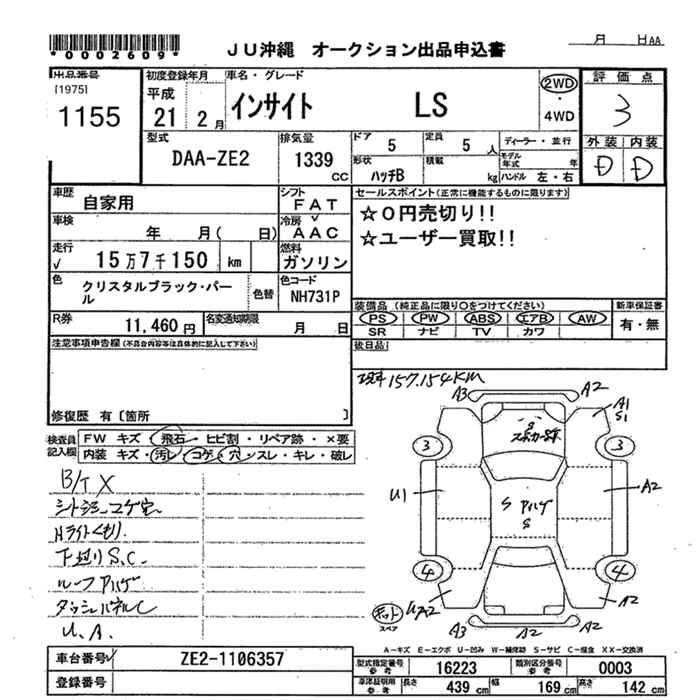 *0002609*
JU沖縄 オークション出品申込書
月 日AA
出品番号
[1975]
1155
初度登録年月
平成
21 2月
車名・グレード
インサイト LS
2WD
・
4WD
評価点
3
外装 内装
D D
型式
DAA-ZE2
排気量
1339
CC
ドア 5
定員 5 人
形状 ハッチB
積載 kg
ディーラー・並行
モデル年式 年
ハンドル 左・右
車歴
自家用
シフト
FAT
車検
年 月( 日)
冷房 √
AAC
走行
√ 15万7千150 km
燃料
ガソリン
色
クリスタルブラック・パー
ル
色替
色コード
NH731P
R券
11,460円
名変通知期限
月 日
セールスポイント(正常に機能するものに限ります)
☆0円売切り!!
☆ユーザー買取!!
装備品 (純正品に限り○をつけてください)
PS PW ABS エアB AW
SR ナビ TV カワ
新車保証書
有・無
後日品
注意事項申告欄(不具合内容等は具体的に記入して下さい)
修復歴 有〔箇所 〕
現車 157,154KM
検査員
記入欄
FW キズ・飛石・ヒビ割・リペア跡・×要
内装 キズ・汚レ・コゲ・穴・スレ・キレ・破レ
B/T X
シートコゲ穴
Hライトくもり
下廻りS.C.
ルーフハゲ
ダッシュパネルC
U.A.
A3 A2
A1
S1
S
3 3
U1 A2
S ハゲ
S
4 4
UA2 A2
A3 A2
キット
スペア
A-キズ E-エクボ U-凹み W-補修跡 S-サビ C-腐食 XX-交換済
車台番号 ZE2-1106357
登録番号
型式指定番号
参考
16223
類別区分番号
参考
0003
車検証明記載
参考
長さ 439 cm 幅 169 cm 高さ 142 cm